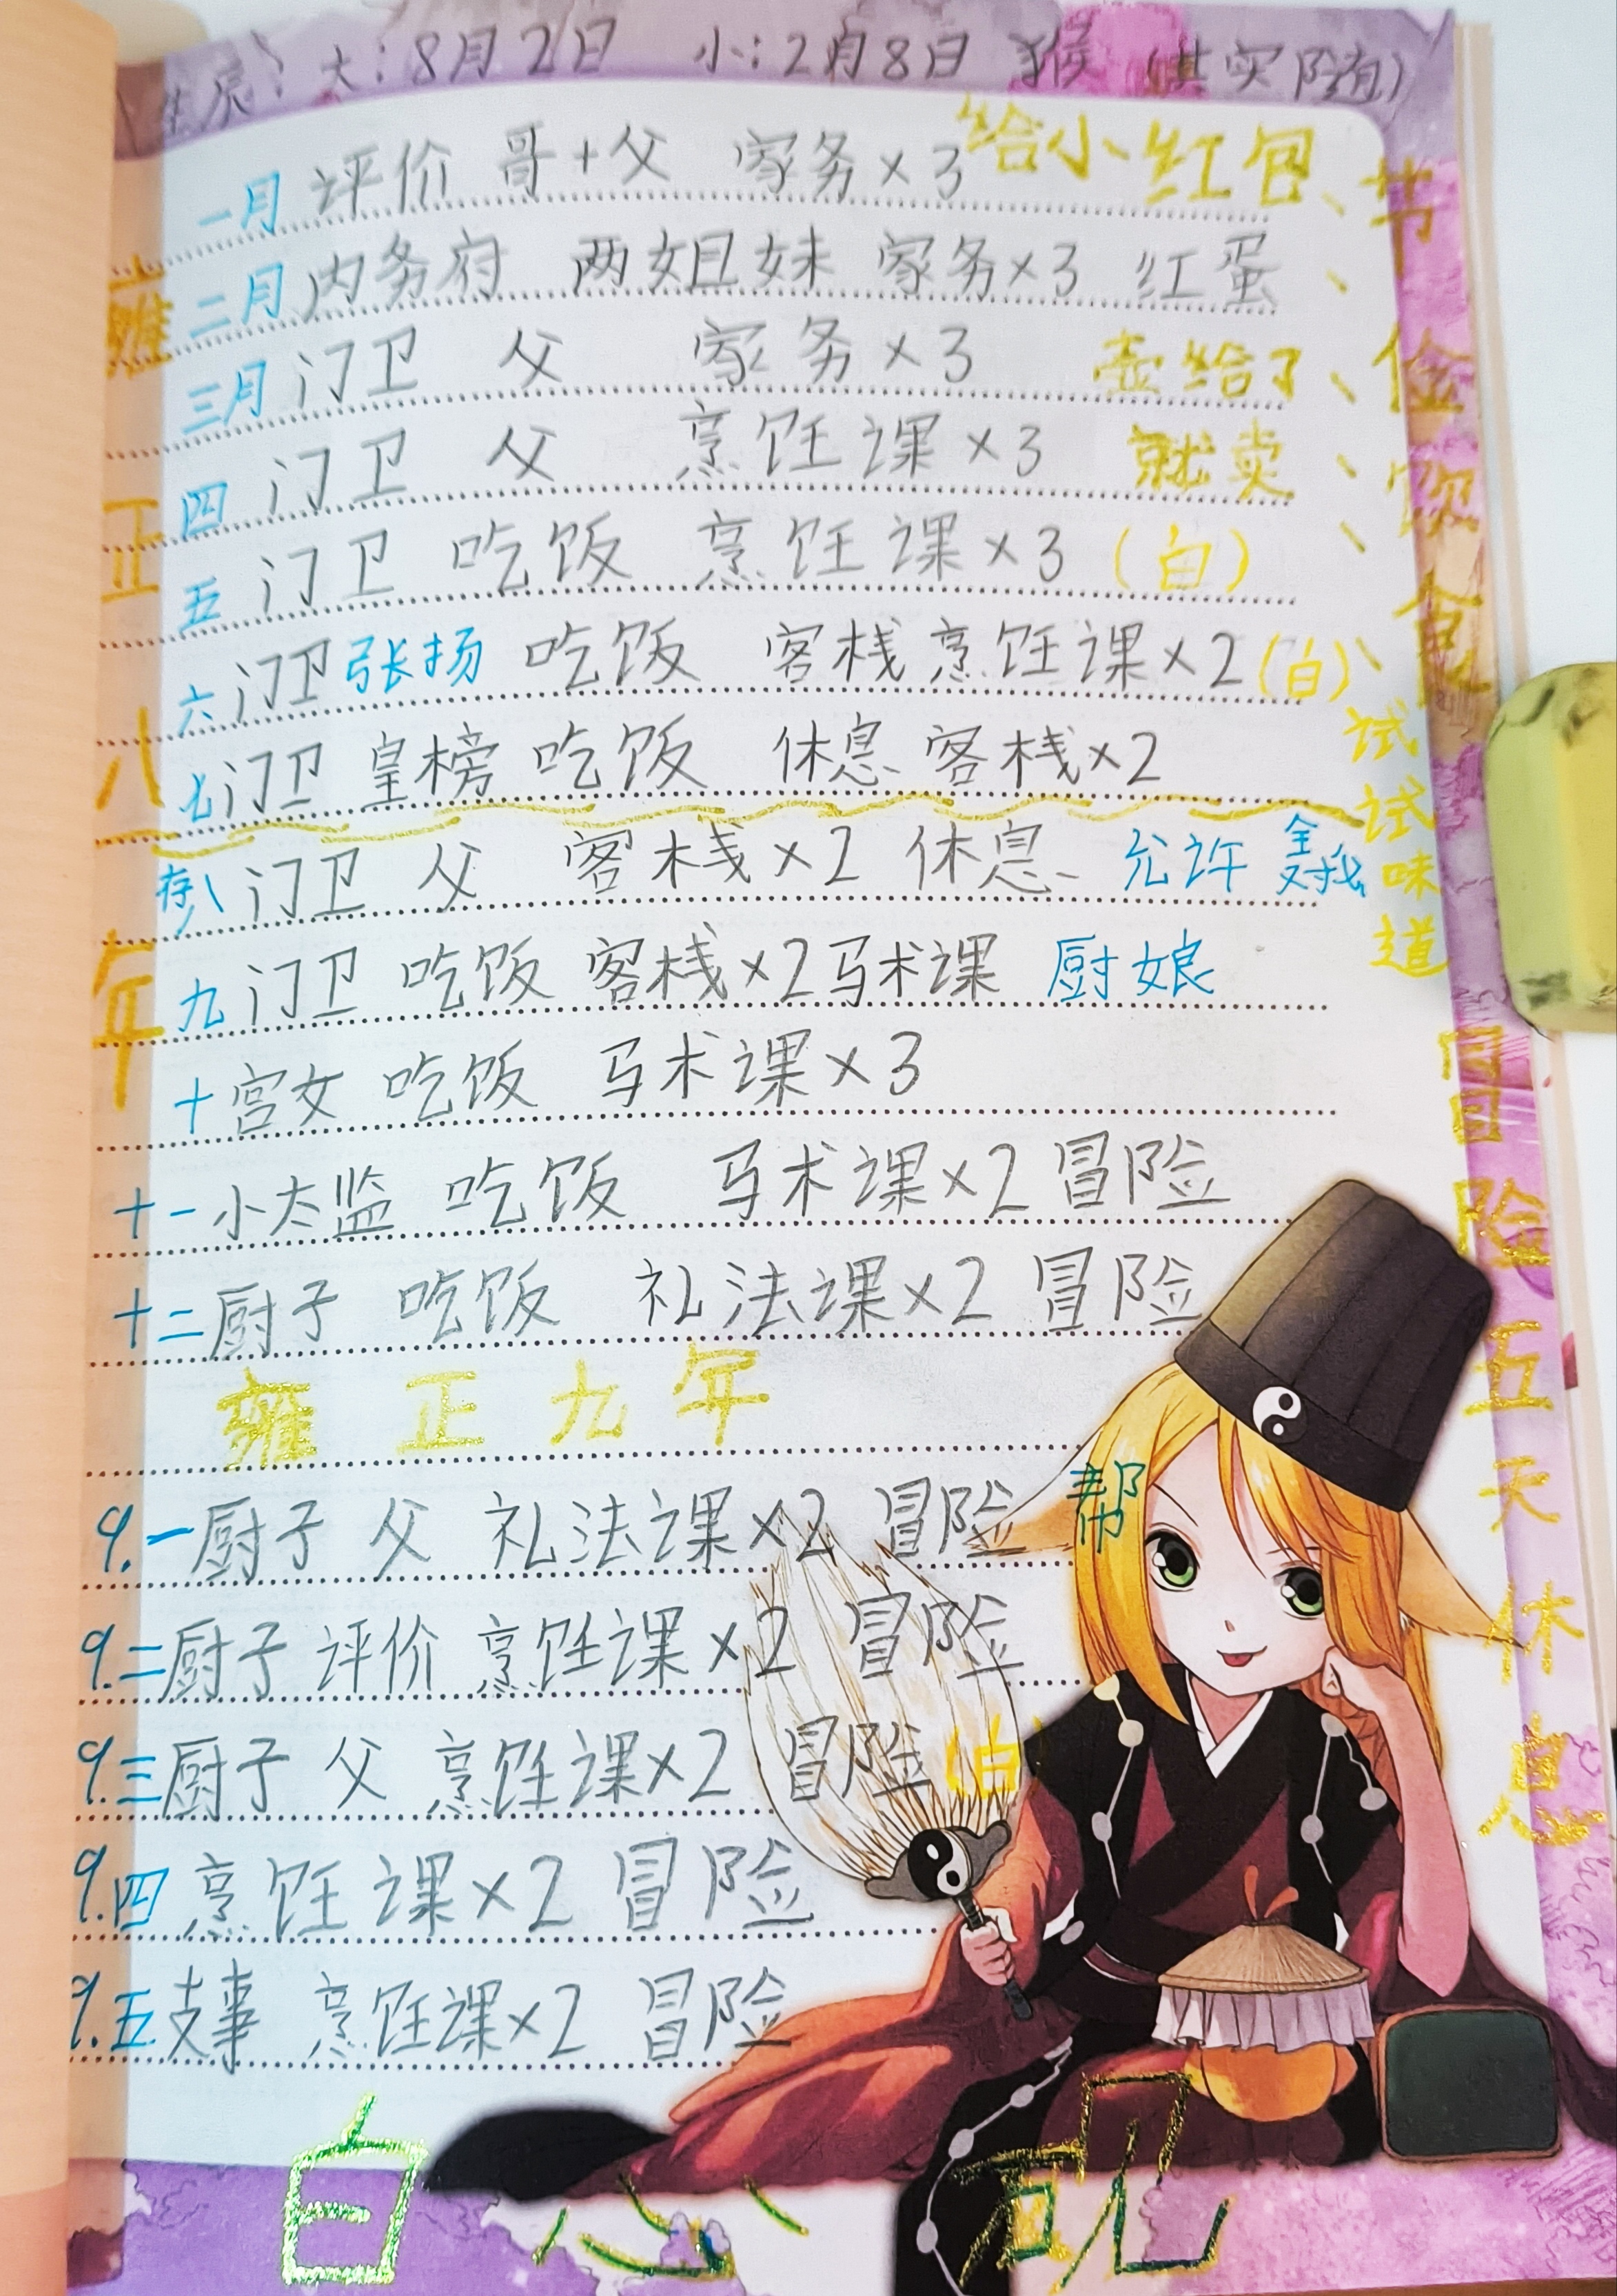 生辰：大：8月2日 小：2月8日 猴（其实随）
雍正八年
一月 评价 哥+父 家务×3 给小红包、
二月 内务府 两姐妹 家务×3 红蛋
三月 门卫 父 家务×3 壶给了
四 门卫 父 烹饪课×3 就卖
五 门卫 吃饭 烹饪课×3（白）
六 门卫 张扬 吃饭 客栈 烹饪课×2（白）
七 门卫 皇榜 吃饭 休息 客栈×2
存八 门卫 父 客栈×2 休息 允许
九 门卫 吃饭 客栈×2 马术课 厨娘
十 宫女 吃饭 马术课×3
十一 小太监 吃饭 马术课×2 冒险
十二 厨子 吃饭 礼法课×2 冒险
雍正九年
9.一 厨子 父 礼法课×2 冒险 帮
9.二 厨子 评价 烹饪课×2 冒险
9.三 厨子 父 烹饪课×2 冒险（白）
9.四 烹饪课×2 冒险
9.五 支事 烹饪课×2 冒险
节俭饮食
试试味道
冒险五天休息
白心祝